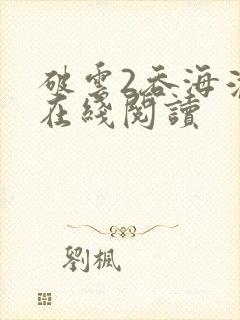 破雲2吞海
在綫閱讀
劉楓